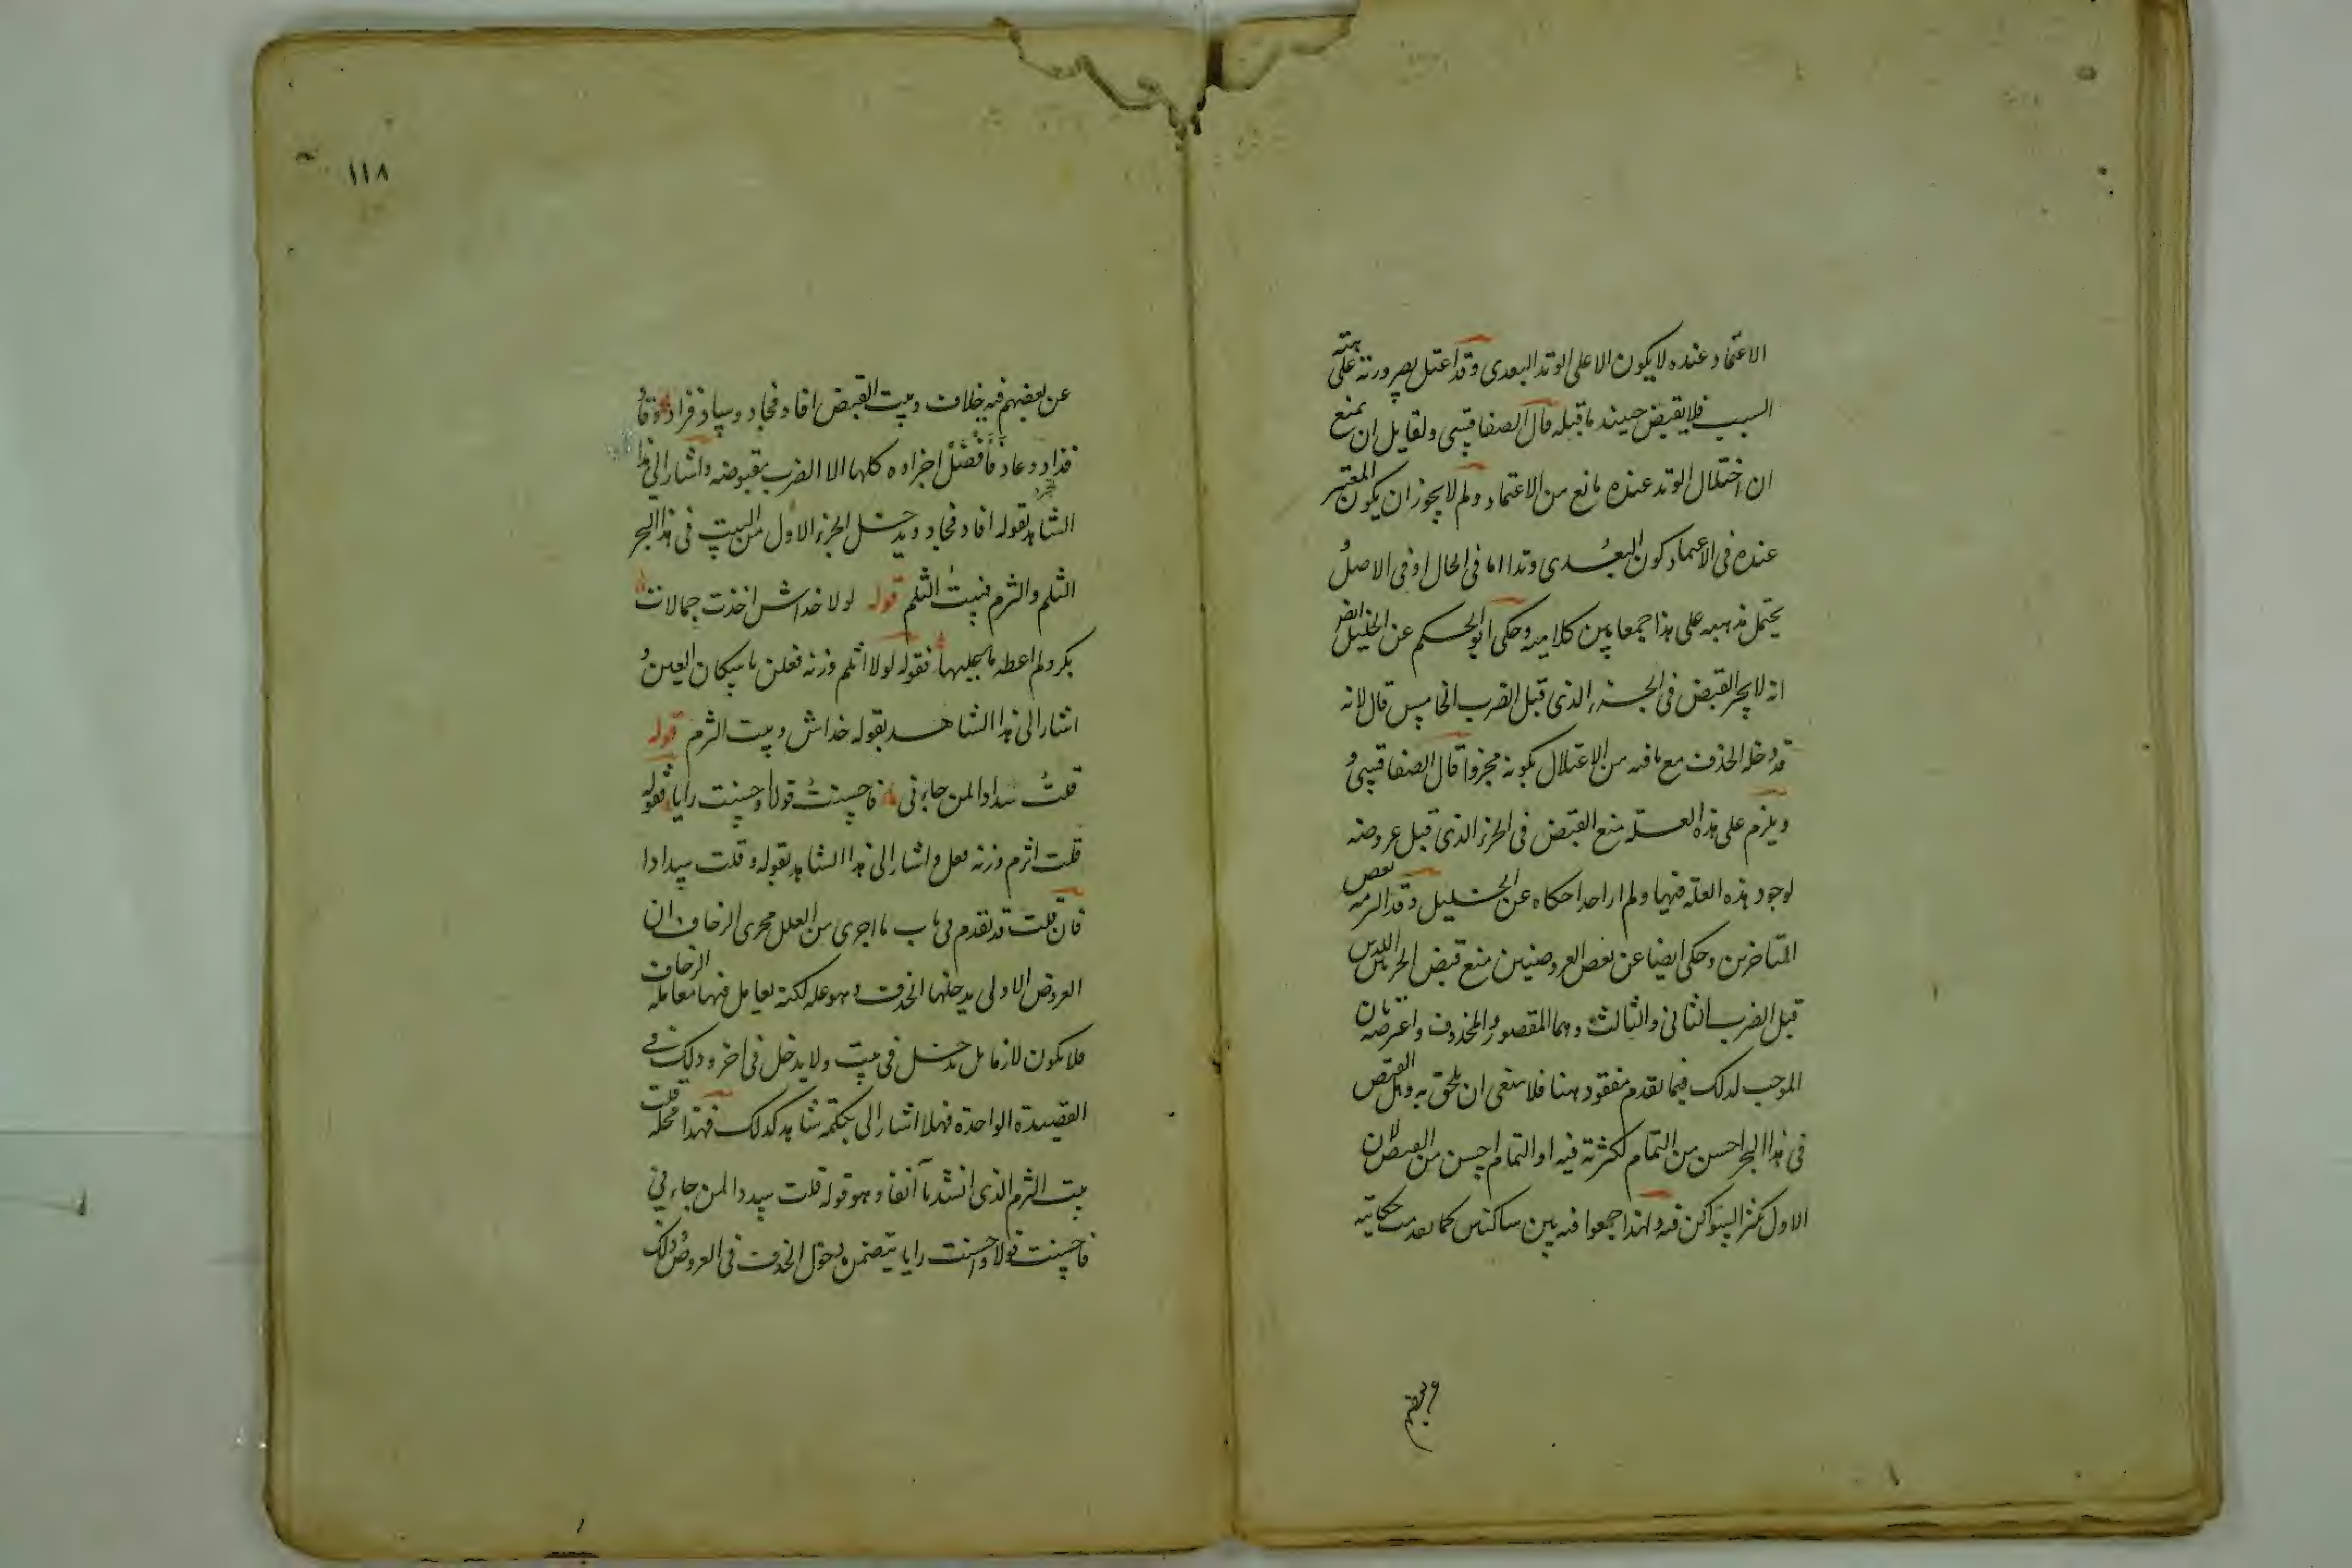 الاعتماد عنده لا يكون الا على الوتد البعدى وقد اعتل بصيرورته على هيئة
السبب فلا يقبض حينئذ ما قبله قال الصفاقسى ولقايل ان يمنع
ان اختلال الوتد عنده مانع من الاعتماد ولم لا يجوز ان يكون المعتبر
عنده فى الاعتماد كون البعدى وتدا اما فى الحال او فى الاصل و
يحتمل مذهبه على هذا جمعا بين كلاميه وحكى ابو الحكم عن الخليل ايضا
انه لا يجيز القبض فى الجزء الذى قبل الضرب الخامس قال لانه
قد دخله الحذف مع ما فيه من الاعتلال بكونه مجزوا قال الصفاقسى و
ويلزم على هذه العلة منع القبض فى الجزء الذى قبل عروضه
لوجود هذه العلة فيها ولم ار احدا حكاه عن الخليل وقد التزمه بعض
المتاخرين وحكى ايضا عن بعض العروضيين منع قبض الجزين اللذين
قبل الضرب الثانى والثالث وهما المقصور والمحذوف واعترضه بان
الموجب لذلك فيما تقدم مفقود هنا فلا ينبغى ان يلحق به وهل القبض
فى هذا البحر احسن من التمام لكثرته فيه او التمام احسن من القبض لان
الاول يكثر السواكن فيه ولهذا جمعوا فيه بين ساكنين كما تقدمت حكايته
١١٨
عن بعضهم فيه خلاف وبيت القبض افاد فجاد وساد فزاد وقاد
فذاد وعاد فأفضل اجزاوه كلها الا الضرب مقبوضه واشار الى هذا
الشاهد بقوله افاد فجاد ويدخل الجزء الاول من البيت فى هذا البحر
الثلم والثرم فبيت الثلم قوله لولا خداش اخذت جمالات
بكر ولم اعطه ما عليها فقوله لولا اثلم وزنه فعلن باسكان العين و
اشار الى هذا الشاهد بقوله خداش وبيت الثرم قوله
قلت سدادا لمن جاءنى فاحسنت قولا واحسنت رايا فقوله
قلت اثرم وزنه فعل واشار الى هذا الشاهد بقوله وقلت سدادا
فان قلت قد تقدم فى باب ما اجرى من العلل مجرى الزحاف ان
العروض الاولى يدخلها الحذف وهو علة لكنه يعامل فيها معاملة الزحاف
فلا يكون لازما بل يدخل فى بيت ولا يدخل فى اخر وذلك فى
القصيدة الواحدة فهلا اشار الى حكمه بشاهد كذلك فهذا محله قلت
بيت الثرم الذى انشدنا آنفا وهو قوله قلت سددا لمن جاءنى
فاحسنت قولا واحسنت رايا يتضمن دخول الحذف فى العروض وذلك